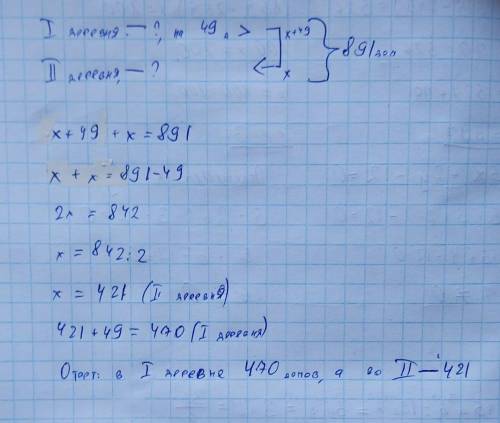 I деревня — ?, на 49 д. > x+49 } 891 доп
II деревня, — ? x
x + 49 + x = 891
x + x = 891-49
2x = 842
x = 842:2
x = 421 (II деревня)
421 + 49 = 470 (I деревня)
Ответ: в I деревне 470 допов, а во II — 421